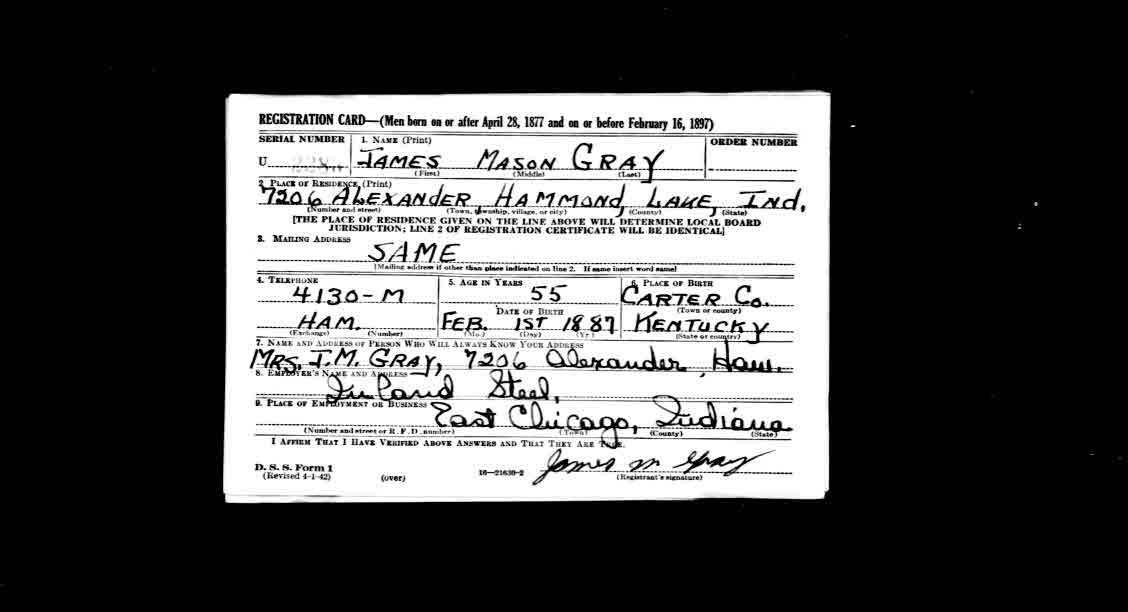 REGISTRATION CARD—(Men born on or after April 28, 1877 and on or before February 16, 1897)
SERIAL NUMBER 1. NAME (Print) ORDER NUMBER
U JAMES MASON GRAY
(First) (Middle) (Last)
2. PLACE OF RESIDENCE (Print)
7206 ALEXANDER, HAMMOND, LAKE, IND.
(Number and street) (Town, township, village, or city) (County) (State)
[THE PLACE OF RESIDENCE GIVEN ON THE LINE ABOVE WILL DETERMINE LOCAL BOARD
JURISDICTION; LINE 2 OF REGISTRATION CERTIFICATE WILL BE IDENTICAL]
3. MAILING ADDRESS
SAME
[Mailing address if other than place indicated on line 2. If same insert word same]
4. TELEPHONE 5. AGE IN YEARS 6. PLACE OF BIRTH
4130-M 55 CARTER CO.
DATE OF BIRTH (Town or county)
HAM. FEB. 1ST 1887 KENTUCKY
(Exchange) (Number) (Mo.) (Day) (Yr.) (State or country)
7. NAME AND ADDRESS OF PERSON WHO WILL ALWAYS KNOW YOUR ADDRESS
MRS. J.M. GRAY, 7206 Alexander, Ham.
8. EMPLOYER'S NAME AND ADDRESS
Inland Steel,
9. PLACE OF EMPLOYMENT OR BUSINESS
East Chicago, Indiana
(Number and street or R. F. D. number) (Town) (County) (State)
I AFFIRM THAT I HAVE VERIFIED ABOVE ANSWERS AND THAT THEY ARE TRUE.
James M Gray
D. S. S. Form 1
(Revised 4-1-42) (over) 16—21630-2 (Registrant's signature)